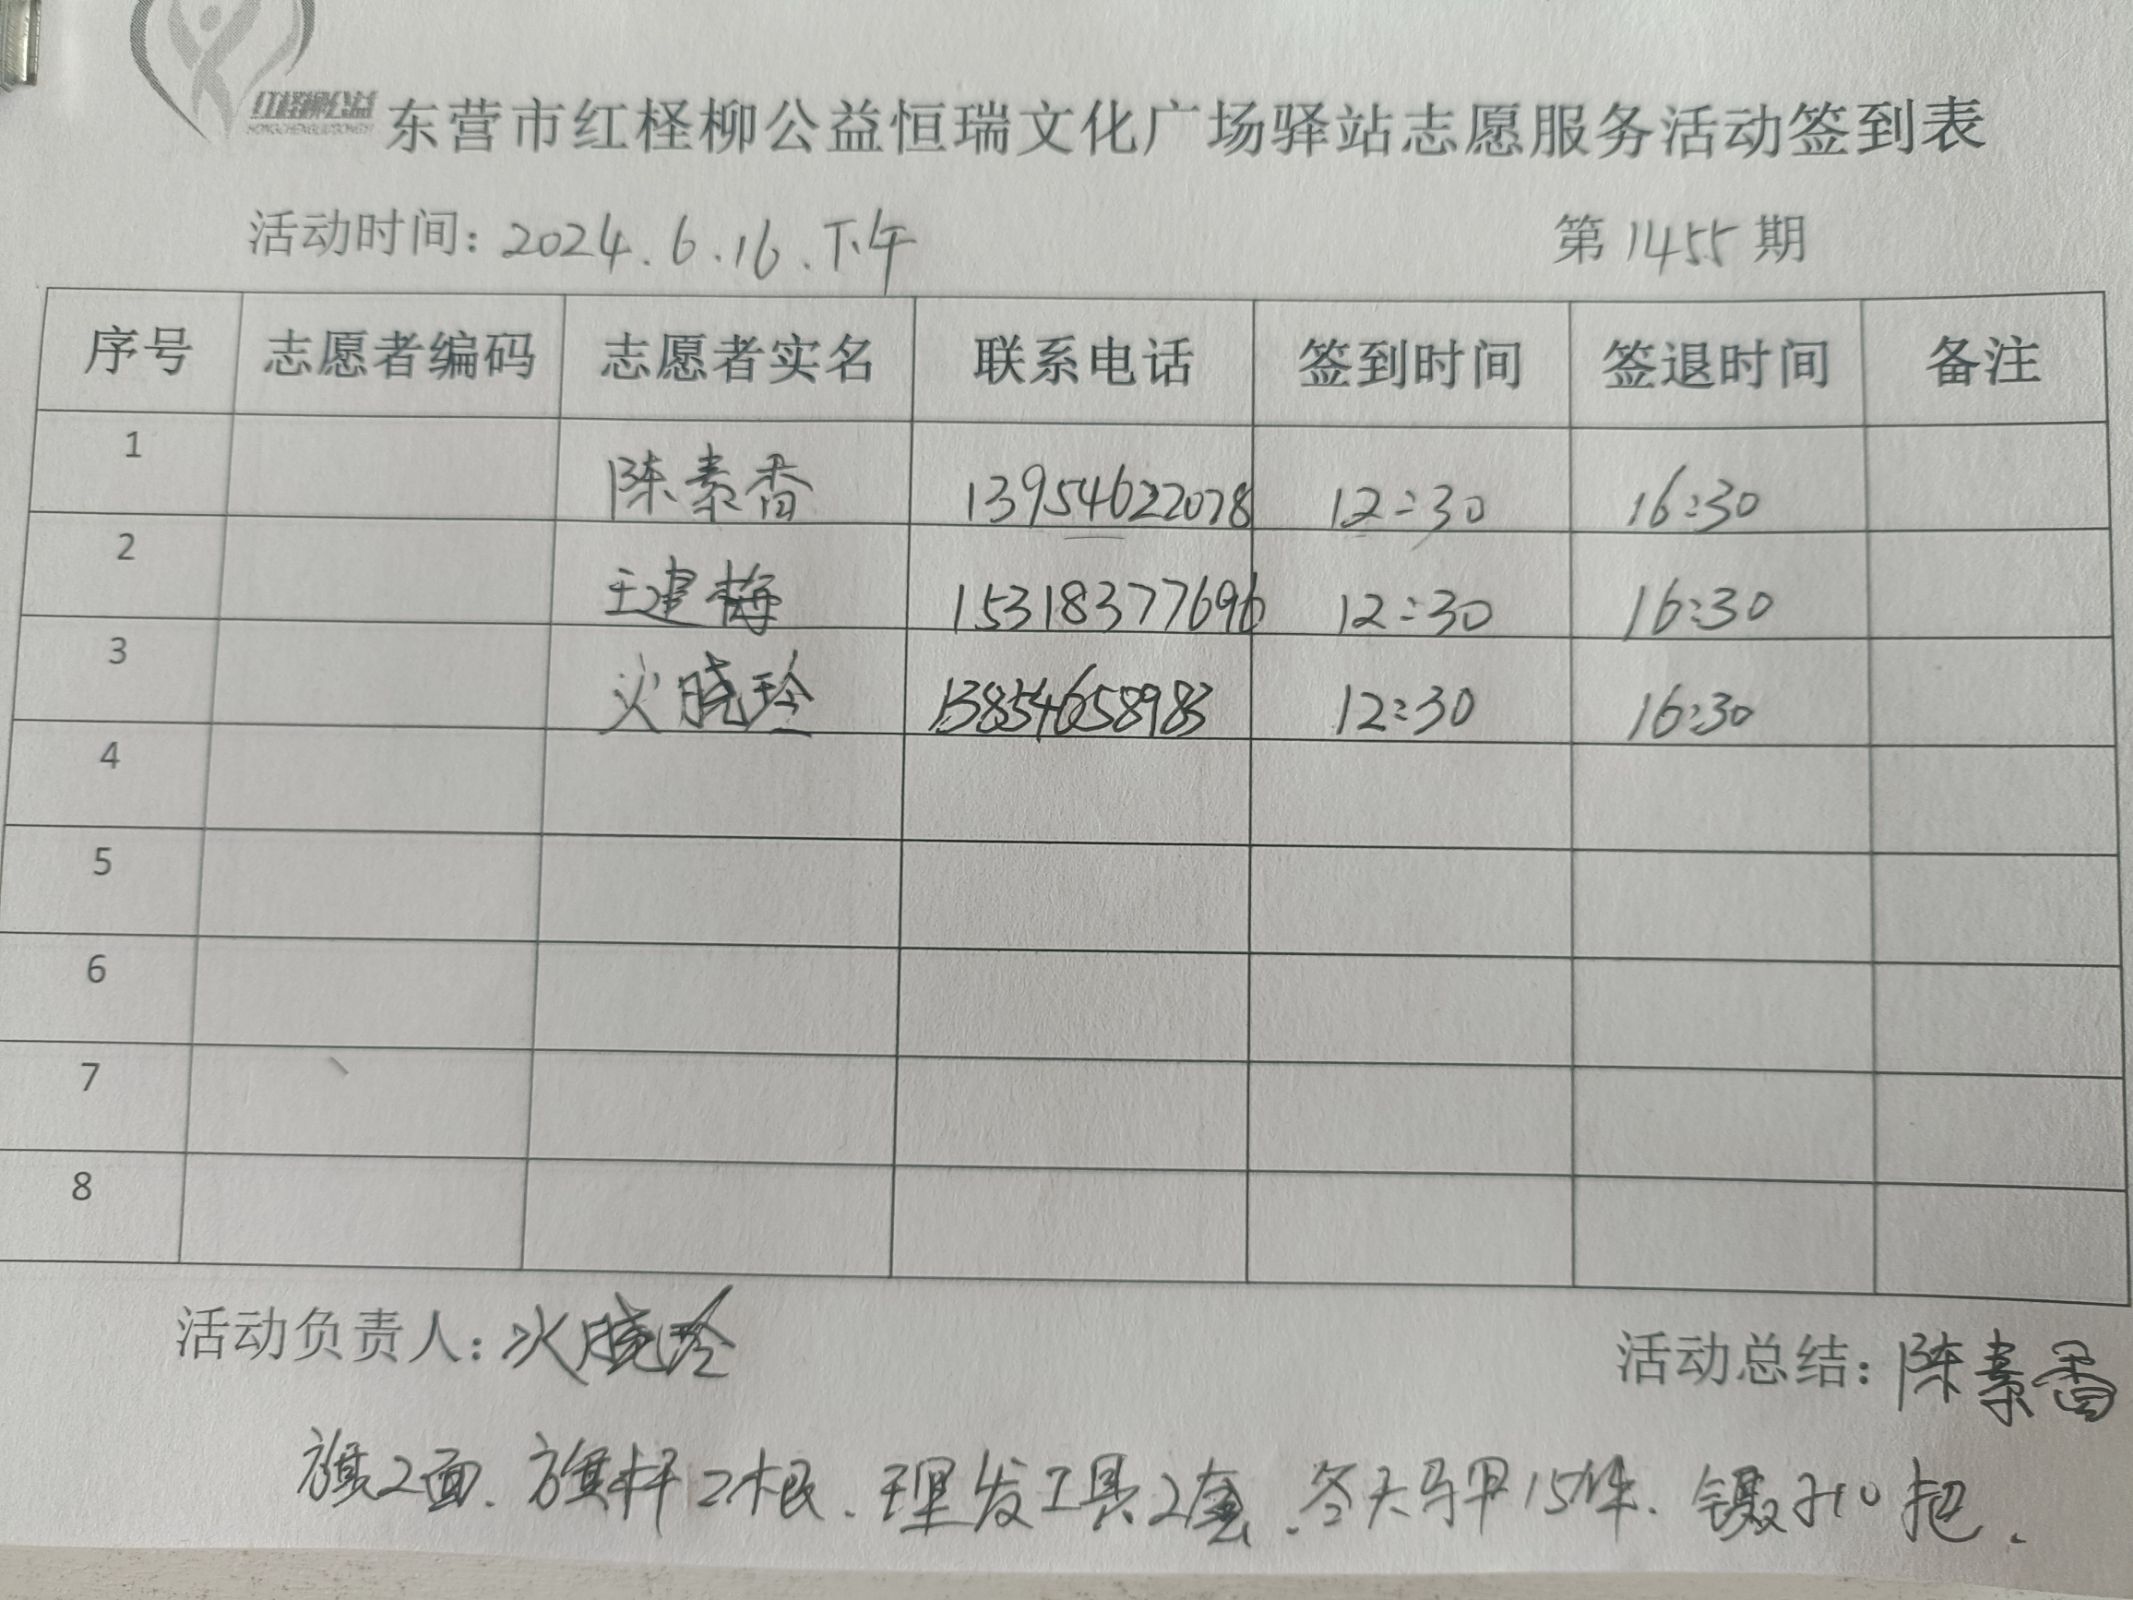 红柽柳公益
HONGCHENGLIUGONGYI
东营市红柽柳公益恒瑞文化广场驿站志愿服务活动签到表
活动时间：2024.6.16.下午 第1455期
序号 志愿者编码 志愿者实名 联系电话 签到时间 签退时间 备注
1 陈素香 13954622078 12:30 16:30
2 王建梅 15318377696 12:30 16:30
3 火晓玲 13854658983 12:30 16:30
4
5
6
7
8
活动负责人：火晓玲 活动总结：陈素香
旗2面、旗杆2根、理发工具2套、冬天马甲15件、镊子10把.